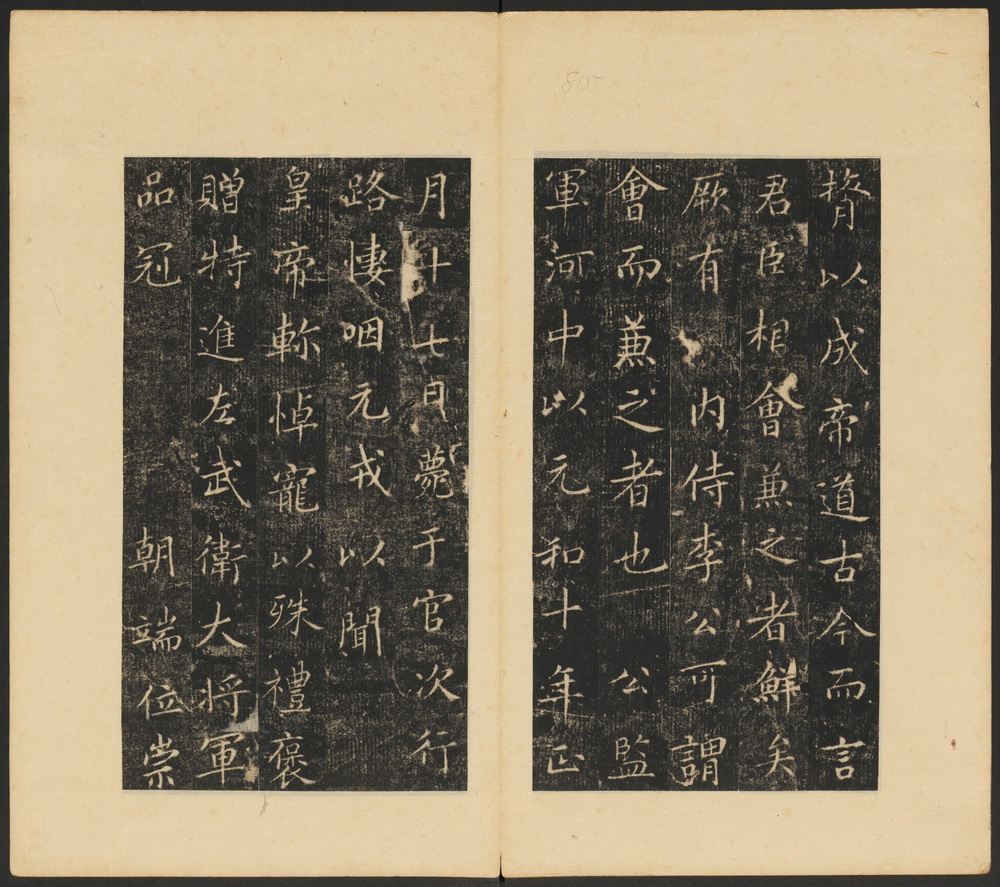 膂以成帝道古今而言
君臣相會兼之者鮮矣
厥有 内侍李公可謂
會而兼之者也 公監
軍河中以元和十年正
月廿七日薨于官次行
路悽咽元戎以聞
皇帝軫悼寵以殊禮褒
贈特進左武衛大将軍
品冠 朝端位崇